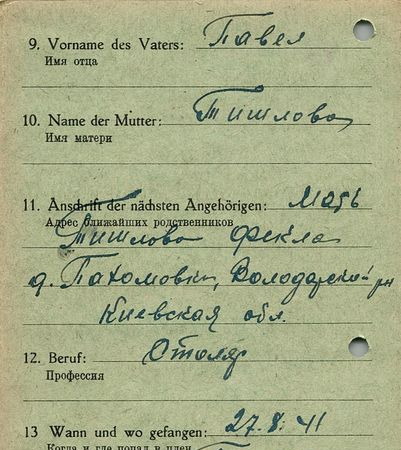 9. Vorname des Vaters: Павел
Имя отца
10. Name der Mutter: Тишлова
Имя матери
11. Anschrift der nächsten Angehörigen: Мать
Адрес ближайших родственников
Тишлова Фекла
д. Пахомовка, Володарской рн
Киевская обл.
12. Beruf: Столяр
Профессия
13 Wann und wo gefangen: 27.8.41
Когда и где попал в плен